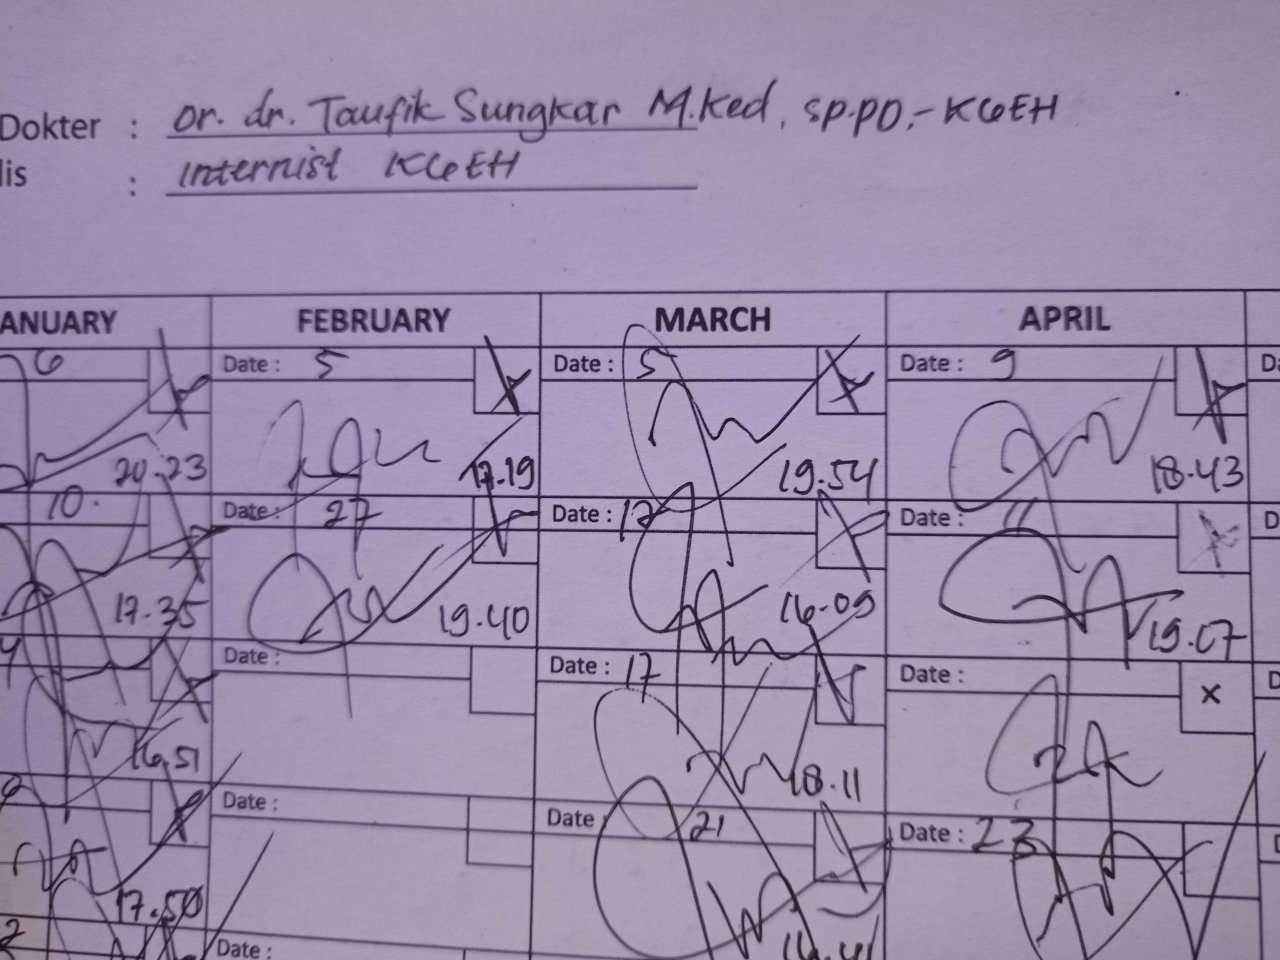 Dokter : Dr. dr. Taufik Sungkar M.Ked, sp.PD,-KGEH
lis : Internist KGEH
ANUARY FEBRUARY MARCH APRIL
6 Date : 5 Date : 5 Date : 9 Da
20.23 17.19 19.54 18.43
10. Date : 27 Date : 12 Date : 11 D
17.35 19.40 16.09 19.07
4 Date : Date : 17 Date : D
16.51 18.11
Date : Date 21 Date : 23 D
17.50 16.41
2 Date :